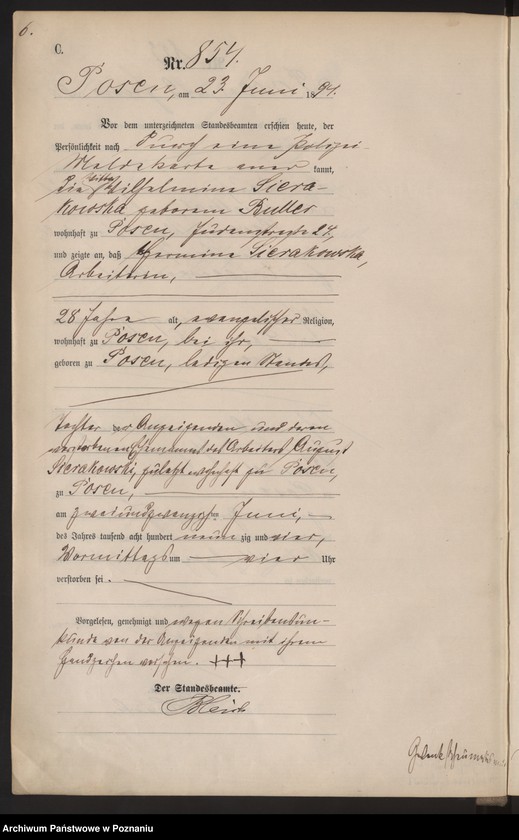 6.
C.
Nr. 854.
Posen, am 23. Juni 1894.
Vor dem unterzeichneten Standesbeamten erschien heute, der
Persönlichkeit nach durch eine Polizei-
Meldekarte aner kannt,
die Wittwe Wilhelmine Siera-
kowska geborene Buller
wohnhaft zu Posen, Judenstraße 27,
und zeigte an, daß Hermine Sierakowska,
Arbeiterin,
28 Jahre alt, evangelischer Religion,
wohnhaft zu Posen, bei ihr,
geboren zu Posen, ledigen Standes,
Tochter der Anzeigenden und deren
verstorbenen Ehemannes des Arbeiters August
Sierakowski, zuletzt wohnhaft zu Posen,
zu Posen,
am zweiundzwanzigsten Juni,
des Jahres tausend acht hundert neun zig und vier,
Vormittags um vier Uhr
verstorben sei.
Vorgelesen, genehmigt und wegen Schreibensun-
kunde von der Anzeigenden mit ihrem
Handzeichen versehen. +++
Der Standesbeamte.
Archiwum Państwowe w Poznaniu